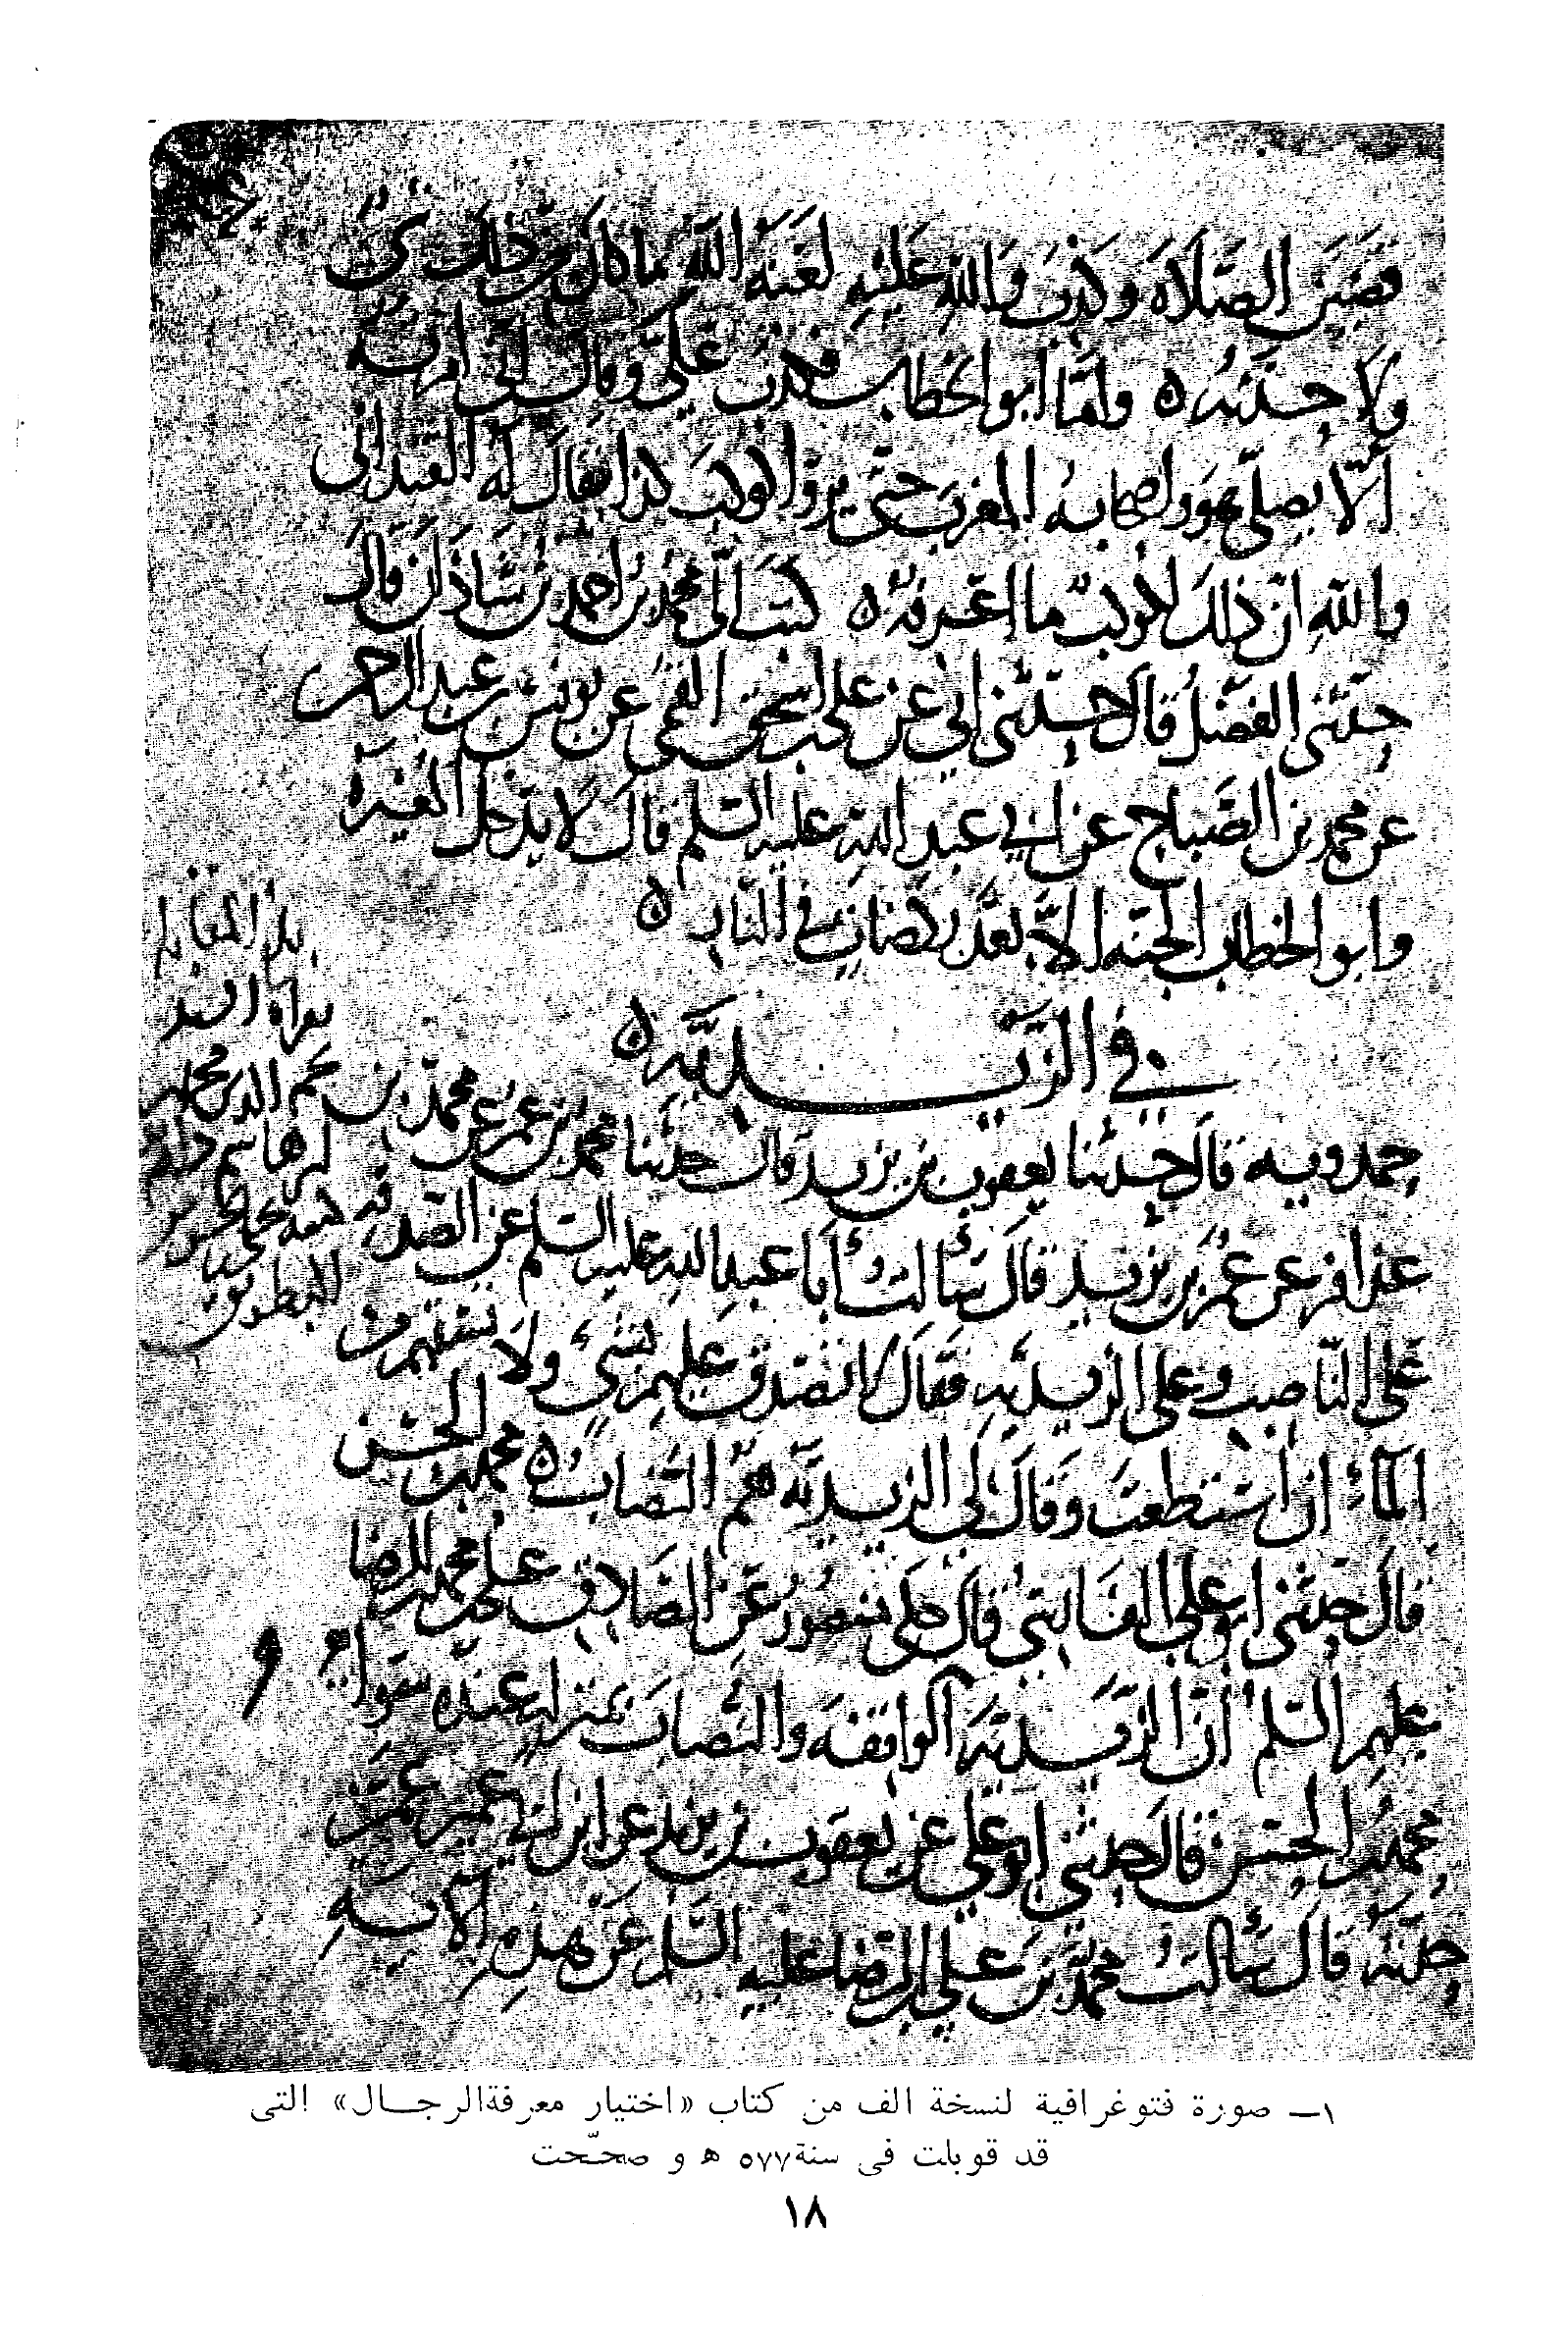 قصبَ الصّلاة وكذب والله عليه لعنه الله ما كان من ذلك شئ
ولا حدثته ٥ واما ابو الخطاب فكذب علىّ وقال انى امرته
الّا يصلى هو واصحابه المغرب حتى يروا كوكب كذا فقال له القندانى
والله ان ذلك لكوكب ما اعرفه ٥ كتب الىّ محمد بن احمد بن شاذان قال
حدّثنى الفضل قال حدّثنى ابى عن على بن اسحق القمى عن يونس بن عبد الرحمن
عن محمد بن الصّباح عن ابى عبد الله عليه السّلم قال لا يدخل المغيرة
وابو الخطاب الجنه الّا بعد ركضات فى النار ٥
فى الزّيديّه ٥
حمدويه قال حدّثنا يعقوب بن يزيد قال حدثنا محمد بن عمر عن محمّد بن
عذافر عن عمر بن يزيد قال سألت أبا عبد الله عليه السّلم عن الصّدقه
على النّاصب وعلى الزيديّه فقال لا تصّدق عليهم بشىء ولا تسقهم من
الماء ان استطعت وقال لى الزيديّه هم النصّاب ٥ محمد بن الحسن
قال حدّثنى ابو على الفارسى قال حكى منصور عن الصّادق على بن محمد بن الرضا
عليهم السّلم أنّ الزّيديّه والواقفه والنصّاب بمنزله عنده سواء
محمد بن الحسن قال حدّثنى ابو على عن يعقوب بن يزيد عن ابن ابى عمير عمّن
حدّثه قال سألت محمّد بن على الرّضا عليه السّلم عن هذه الآيه
بلغ المقابله
نجم الدين محمد
١ـ صورة فتوغرافية لنسخة الف من كتاب «اختيار معرفةالرجـال» التى
قد قوبلت فى سنة ٥٧٧ ه و صحّحت
١٨